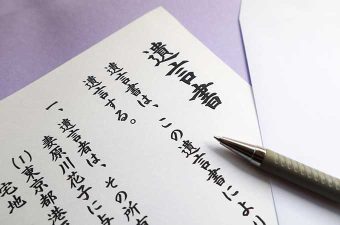 遺言書
遺言書は、この遺言書により
遺言する。
一、遺言者は、その所有
妻願川花子に与
(1)東京都港
宅地